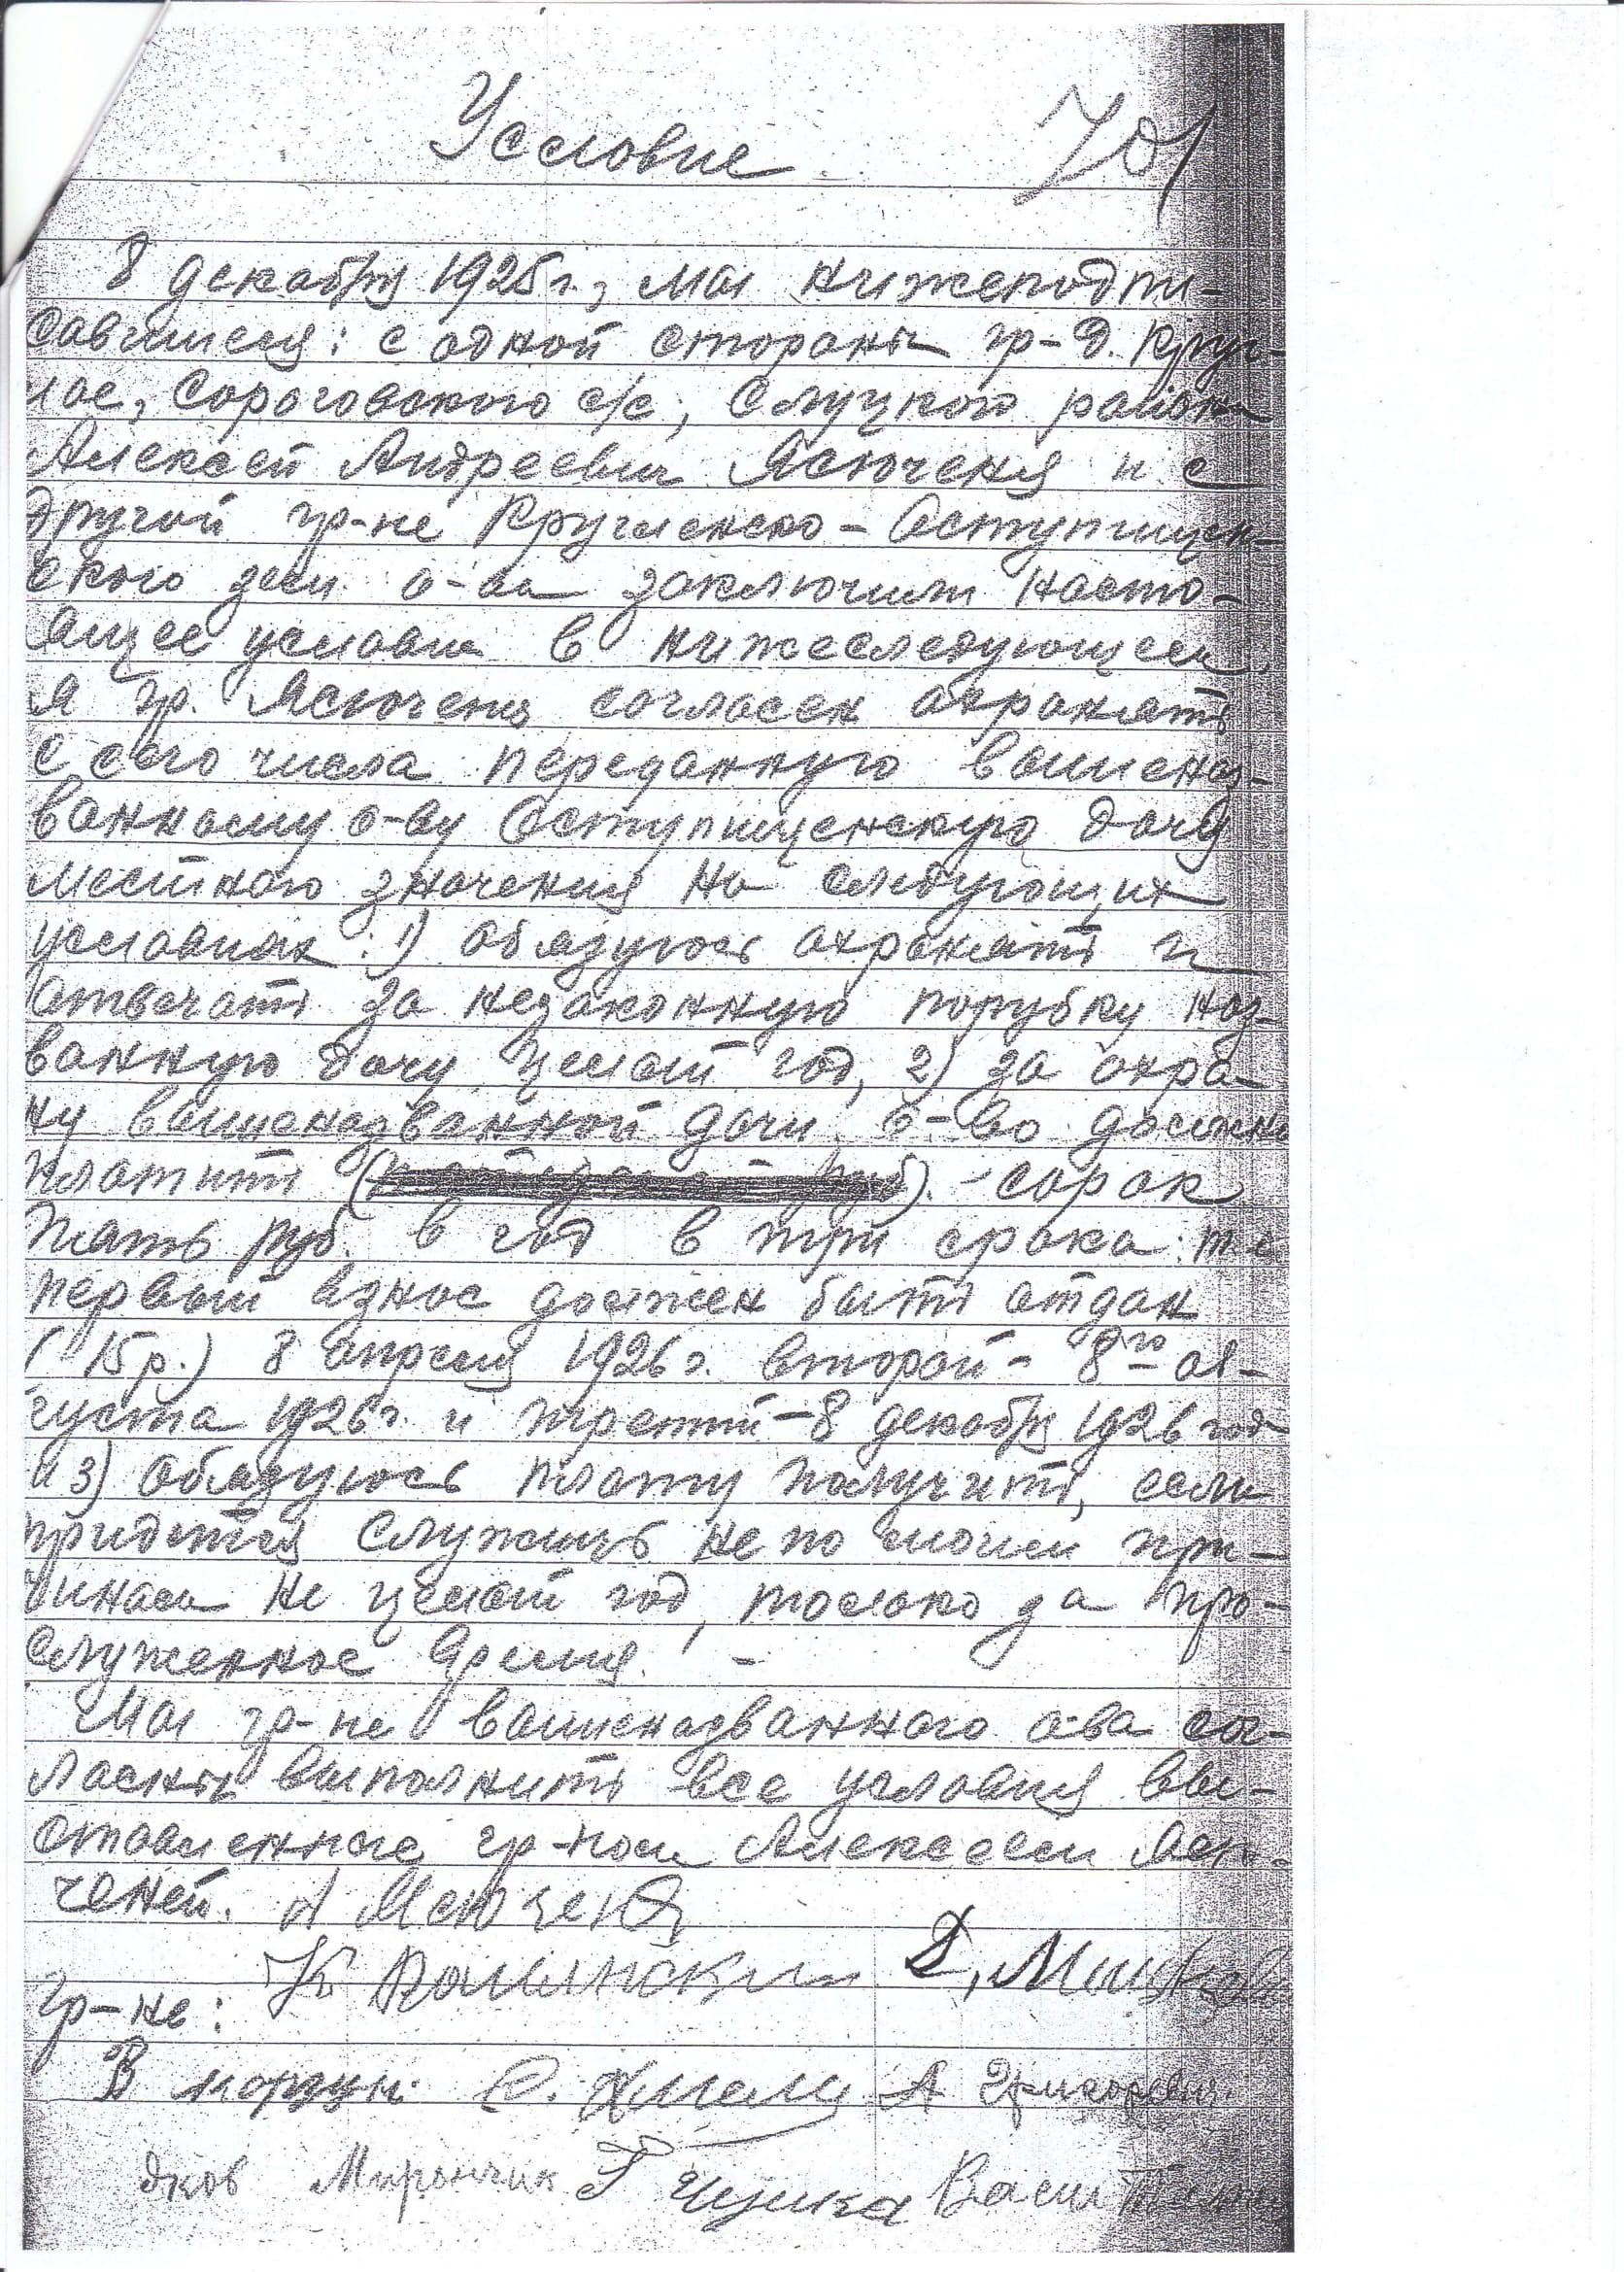 Условие 701
8 декабря 1925 г., мы нижеподпи-
савшиеся: с одной стораны гр-н д. Круг-
лое, Сороговского с/с, Слуцкого района
Алексей Андреевич Ясюченя и с
другой гр-не Кругленско-Оступищен-
ского зем. о-ва заключили насто-
ящее условие в нижеследующем
Я гр. Ясюченя согласен охранять
с сего числа переданную вышеназ-
ванному о-ву Оступищенскую дачу
местного значения на следующих
условиях: 1) обязуюсь охранять и
отвечать за незаконную порубку наз-
ванную дачу целый год, 2) за охра-
ну вышеназванной дачи о-во должно
платить ( ). - сорок
пять руб. в год в три срока: т-е
первый взнос должен быть отдан
(15 р.) 8 апреля 1926 г. второй - 8го ав-
густа 1926 г. и третий - 8 декабря 1926 год
и 3) обязуюсь плату получить, если
придется служить не по моим при-
чинам не целый год, только за про-
служенное время. -
Мы гр-не вышеназванного о-ва сог-
ласны выполнить все условия вы-
ставленные гр-ном Алексеем Ясю-
ченей. А Ясюченя
гр-не:
В А Григоревич
Яков Мирончик Г